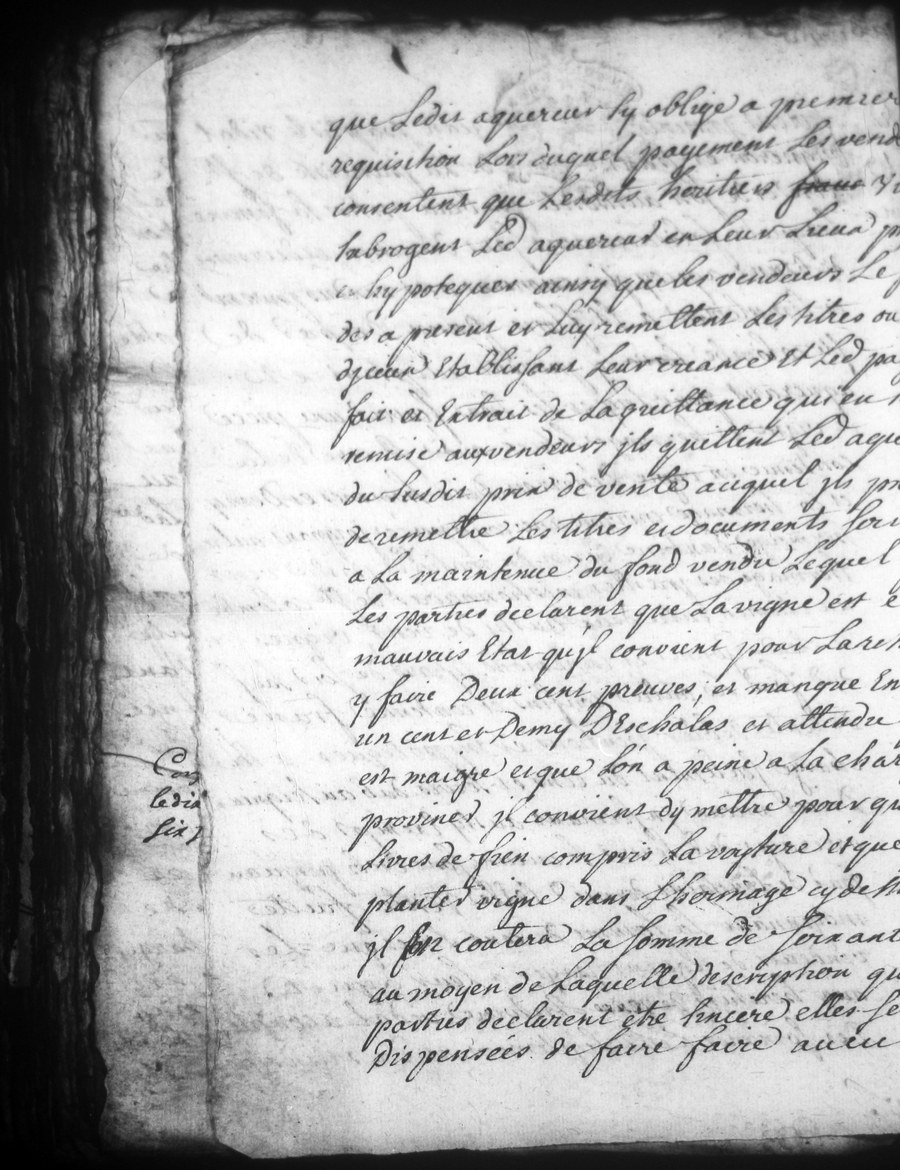 que Ledit aquereur sy oblige a premiere
requisition Lors duquel payement Les vend
consentent que Lesdits heritiers
subrogent Led aquereur en Leur Lieux p
hypoteques ainsy que les vendeurs Le
des a present et Luy remettent Les titres ou
d'jceux Etablissant Leur creance Et Led pa
fait et Extrait de La quittance qui en
remise aux vendeurs jls quittent Led aque
du susdit prix de vente auquel jls pr
de remettre Les titres et documents ser
a La maintenue du fond vendu Lequel
Les parties declarent que La vigne est e
mauvais Etat qu'jl convient pour La ret
y faire Deux cent preuves, et manque En
un cent et Demy D'Eschalas et attendu
est maigre et que L'on a peine a La char
proviner jl convient dy mettre pour qu
Livres de fien compris La voyture et que
planter vigne dans L'hermage cy de
jl en coutera La somme de soixant
au moyen de Laquelle description qu
parties declarent etre sincere elles se
Dispensées de faire faire aucu
Con
ledit
six